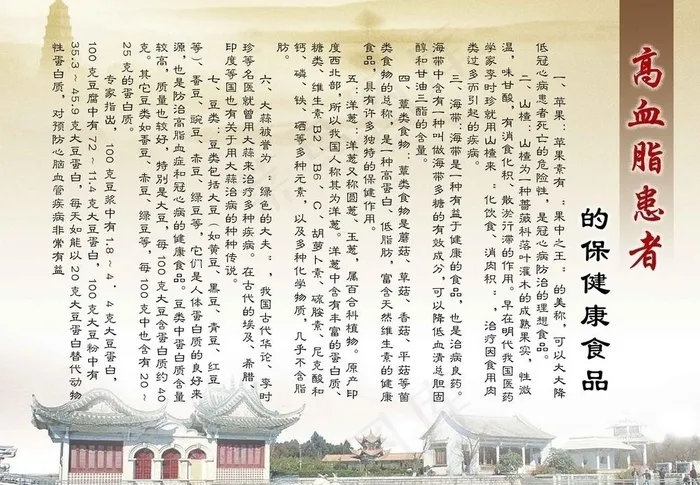 高血脂患者
的保健康食品
一、苹果：苹果素有“果中之王”的美称，可以大大降
低冠心病患者死亡的危险性，是冠心病防治的理想食品。
二、山楂：山楂为一种蔷薇科落叶灌木的成熟果实，性微
温，味甘酸，有消食化积、散淤行滞的作用。早在明代我国医药
学家李时珍就用山楂来“化饮食，消肉积”，治疗因食用肉
类过多而引起的疾病。
三、海带：海带是一种有益于健康的食品，也是治病良药。
海带中含有一种叫做海带多糖的有效成分，可以降低血清总胆固
醇和甘油三酯的含量。
四、蕈类食物：蕈类食物是蘑菇、草菇、香菇、平菇等菌
类食物的总称，是一种高蛋白、低脂肪，富含天然维生素的健康
食品，具有许多独特的保健作用。
五：洋葱：洋葱又称圆葱、玉葱，属百合科植物。原产印
度西北部，所以我国人称其为洋葱。洋葱中含有丰富的蛋白质、
糖类、维生素B2、B6、C、胡萝卜素、硫胺素、尼克酸和
钙、磷、铁、硒等多种元素，以及多种化学物质，几乎不含脂
肪。
六、大蒜被誉为“绿色的大夫”，我国古代华论、李时
珍等名医就曾用大蒜来治疗多种疾病。在古代的埃及、希腊、
印度等国也有关于用大蒜治病的种种传说。
七、豆类：豆类包括大豆（如黄豆、黑豆、青豆、红豆
等）、蚕豆、豌豆、赤豆、绿豆等，它们是人体蛋白质的良好来
源，也是防治高脂血症和冠心病的健康食品。豆类中蛋白质含量
较高，质量也较好，特别是大豆，每100克大豆含蛋白质约40
克。其它豆类如蚕豆、赤豆、绿豆等，每100克中也含有20～
25克的蛋白质。
专家指出，100克豆浆中有1.8～4．4克大豆蛋白，
100克豆腐中有7.2～11.4克大豆蛋白，100克大豆粉中有
35.3～45.9克大豆蛋白，每天如能以20克大豆蛋白替代动物
性蛋白质，对预防心脑血管疾病非常有益